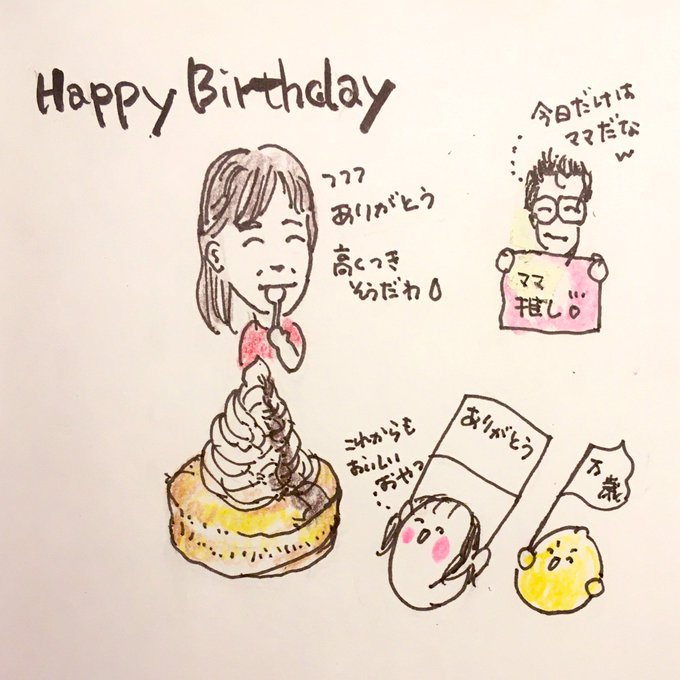 Happy Birthday
フフフ
ありがとう
高くつき
そうだわ
今日だけは
ママだな
w
ママ
推し
これからも
おいしい
おやつ
ありがとう
万歳